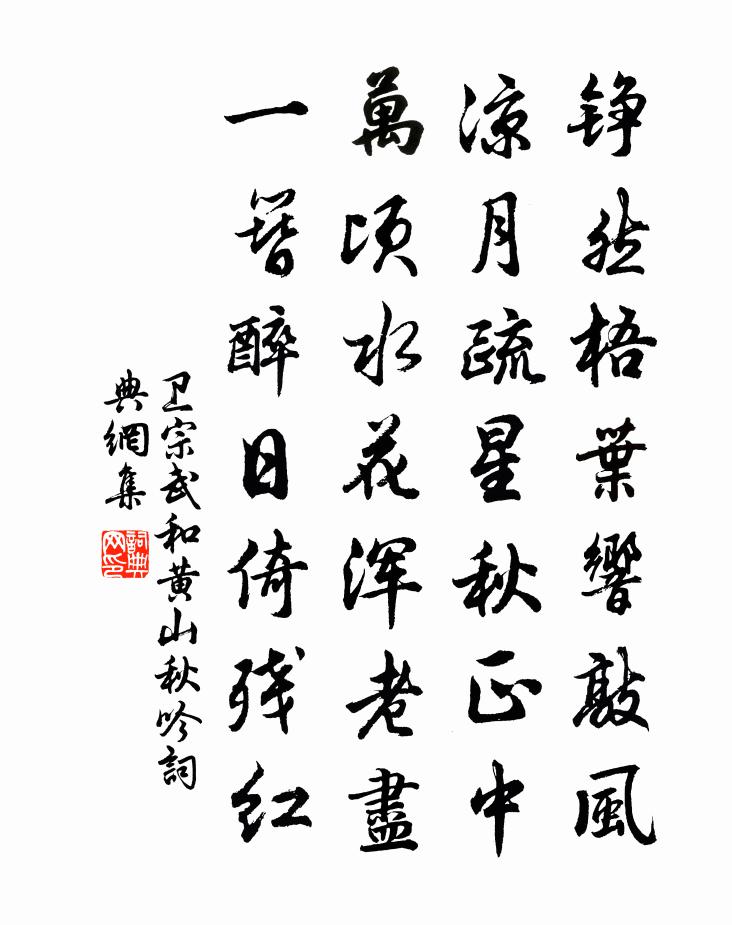 铮然梧葉響敲風
凉月疏星秋正中
萬頃水花浑老盡
一簪醉日倚残红
卫宗武和黄山秋吟詞
典網集
詞典
网印